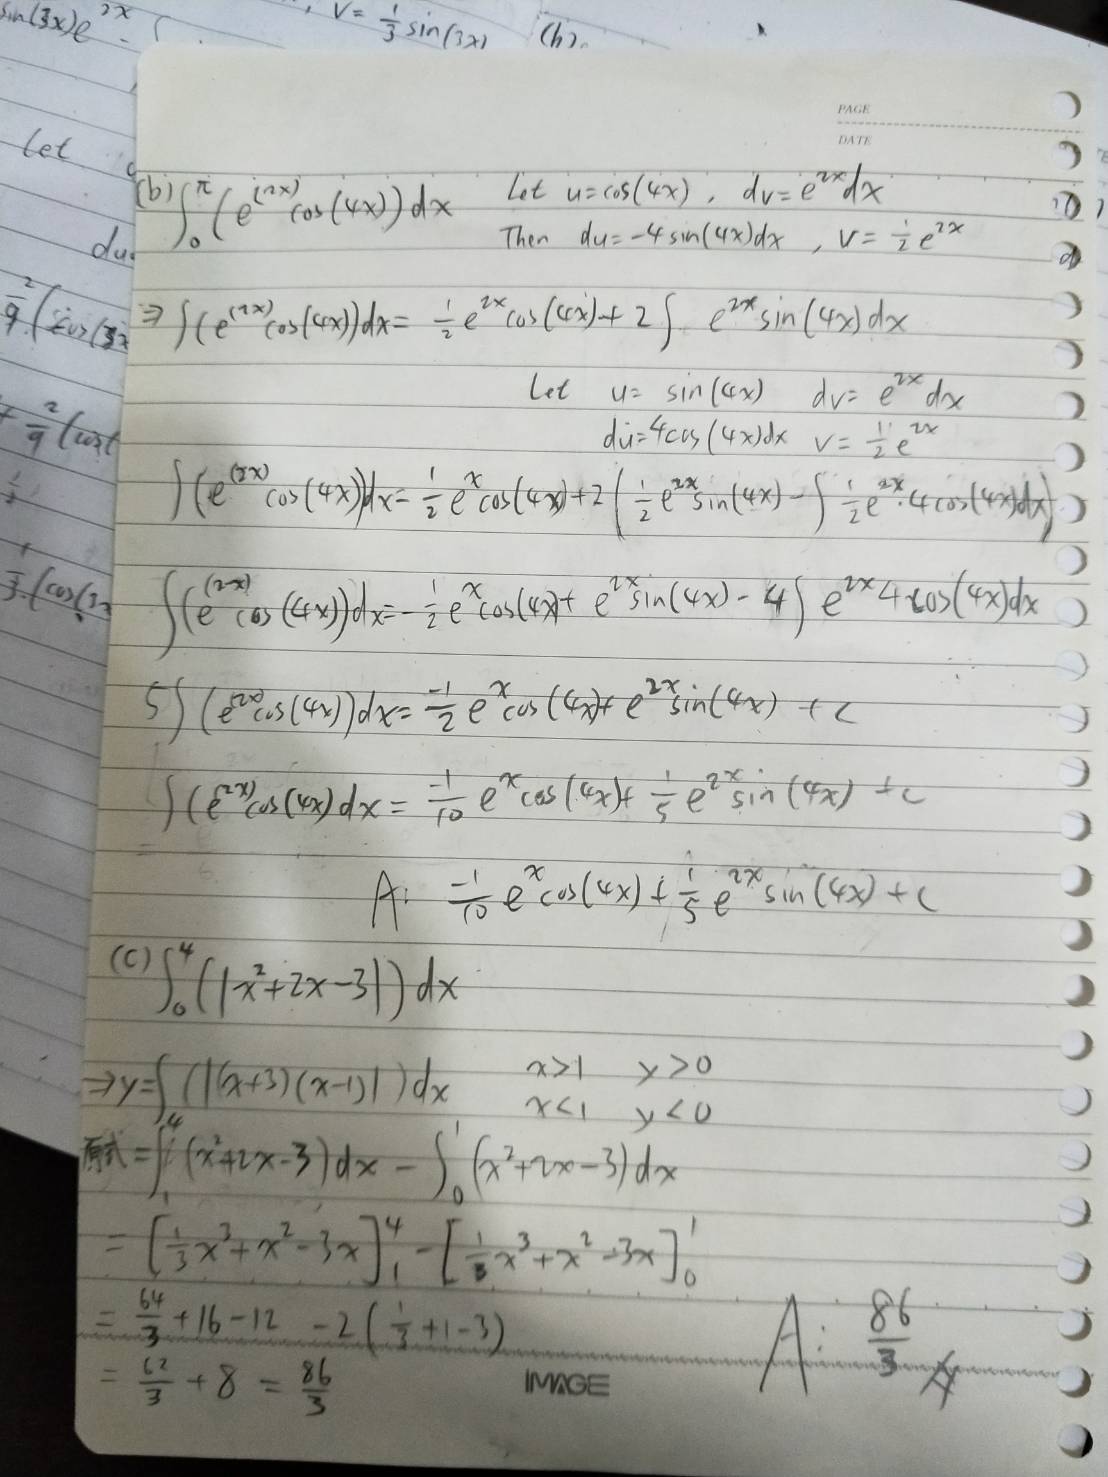 sin(3x)e^{2x} - ∫
, v = 1/3 sin(3x) (b)
PAGE
DATE
Let
du
(b) ∫_0^π (e^{(2x)} cos(4x)) dx Let u = cos(4x), dv = e^{2x} dx
Then du = -4 sin(4x) dx, v = 1/2 e^{2x}
⇒ ∫(e^{(2x)} cos(4x)) dx = 1/2 e^{2x} cos(4x) + 2∫ e^{2x} sin(4x) dx
Let u = sin(4x) dv = e^{2x} dx
du = 4cos(4x) dx v = 1/2 e^{2x}
∫(e^{(2x)} cos(4x)) dx = 1/2 e^x cos(4x) + 2(1/2 e^{2x} sin(4x) - ∫ 1/2 e^{2x} · 4 cos(4x) dx)
∫(e^{(2x)} cos(4x)) dx = -1/2 e^x cos(4x) + e^{2x} sin(4x) - 4∫ e^{2x} 4 cos(4x) dx
5∫(e^{(2x)} cos(4x)) dx = -1/2 e^x cos(4x) + e^{2x} sin(4x) + c
∫(e^{(2x)} cos(4x) dx = -1/10 e^x cos(4x) + 1/5 e^{2x} sin(4x) + c
A: -1/10 e^x cos(4x) + 1/5 e^{2x} sin(4x) + c
(c) ∫_0^4 (|x^2+2x-3|) dx
⇒ y = ∫(|(x+3)(x-1)|) dx x>1 y>0
x<1 y<0
原式 = ∫_1^4 (x^2+2x-3) dx - ∫_0^1 (x^2+2x-3) dx
= [1/3 x^3 + x^2 - 3x]_1^4 - [1/3 x^3 + x^2 - 3x]_0^1
= 64/3 + 16 - 12 - 2(1/3 + 1 - 3)
= 62/3 + 8 = 86/3
A: 86/3
IMAGE